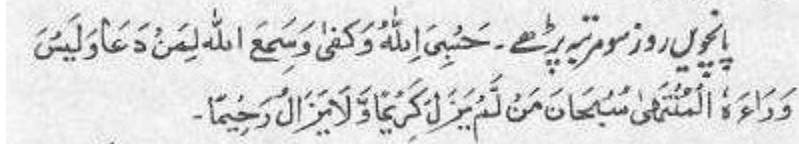 پانچویں روز سو مرتبہ پڑھے ۔ حَسْبِیَ اللّٰهُ وَکَفٰی وَسَمِعَ اللّٰه لِمَنْ دَعَا وَلَیْسَ
وَرَاءَہُ الْمُنْتَهٰی سُبْحَانَ مَنْ لَّمْ یَزَلْ کَرِیْمًا وَّلَا یَزَالُ رَحِیْمًا ۔